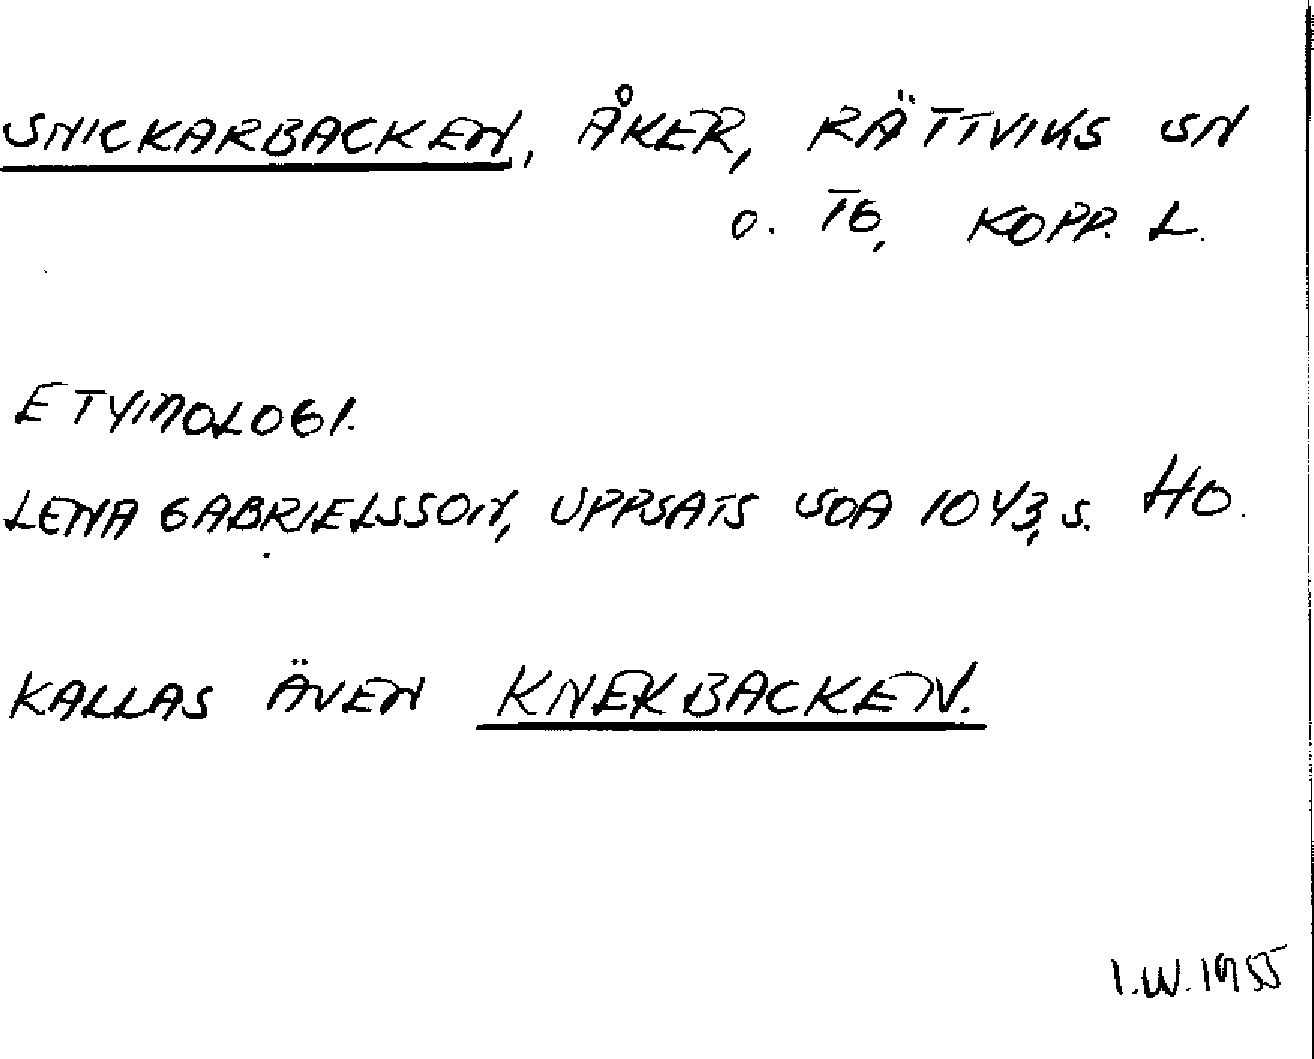 SNICKARBACKEN, ÅKER, RÄTTVIKS SN
O. TG, KOPP. L.
ETYMOLOGI.
LENA GABRIELSSON, UPPSATS SOA 1043, S. 40.
KALLAS ÄVEN KNEKBACKEN.
I.W. 1955